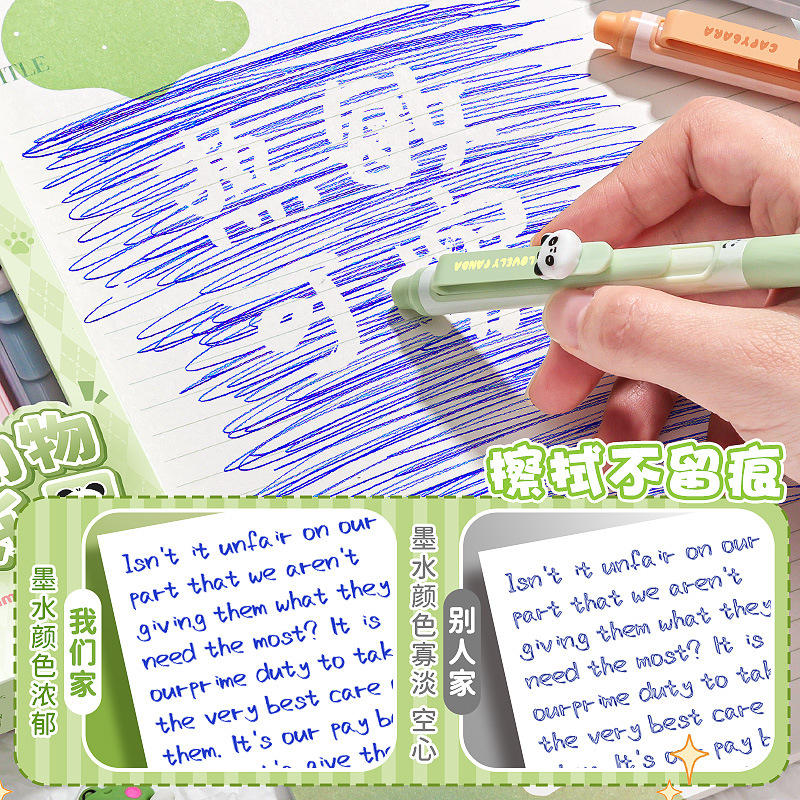 CAPYBARA
LOVELY PANDA
物
擦拭不留痕
墨水颜色浓郁
我们家
Isn't it unfair on our
part that we aren't
giving them what they
need the most? It is
ourprime duty to tak
the very best care
them. It's our pay b
give the
墨水颜色寡淡 空心
别人家
Isn't it unfair on our
part that we aren't
giving them what they
need the most? It is
ourprime duty to ta
the very best care
It's our pay b
give th